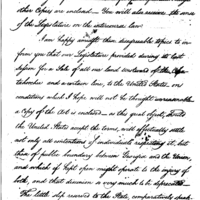 other Copies are enclosed. You will also receive the views
of the Legislature on the interesting Law.
I am happy amidst these disagreeable topics to in-
form you that our Legislature provided during its last
session for a Sale of all our land westward of the Chata-
hoochie and a certain line, to the United States, on
conditions which I hope will not be thought unreasonable.
a Copy of the Act is enclosed — as the great object, should
the United States accept the terms, will effectually settle
not only all contentions of individuals respecting it, but
that of public boundary between Georgia and the Union,
and which if kept open might operate to the injury of
both, and that disunion is very much to be deprecated.
The little slip reserved to the State, comparatively speak-